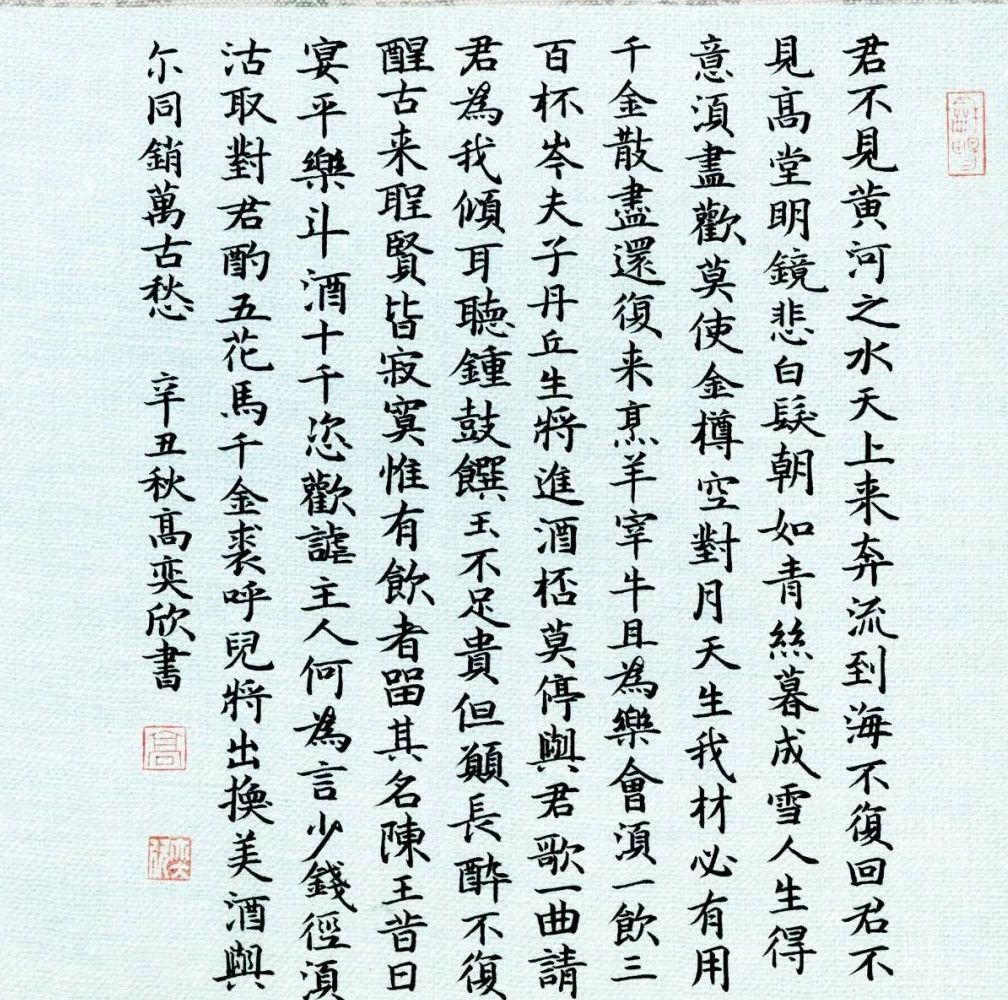 君不見黄河之水天上来奔流到海不復回君不
見髙堂明鏡悲白髮朝如青絲暮成雪人生得
意湏盡歡莫使金樽空對月天生我材必有用
千金散盡還復来烹羊宰牛且為樂會湏一飲三
百杯岑夫子丹丘生將進酒桮莫停與君歌一曲請
君為我傾耳聽鍾鼓饌玉不足貴但願長醉不復
醒古来聖賢皆寂寞惟有飲者留其名陳王昔日
宴平樂斗酒十千恣歡謔主人何為言少錢徑湏
沽取對君酌五花馬千金裘呼兒將出換美酒與
尓同銷萬古愁 辛丑秋髙奕欣書
高